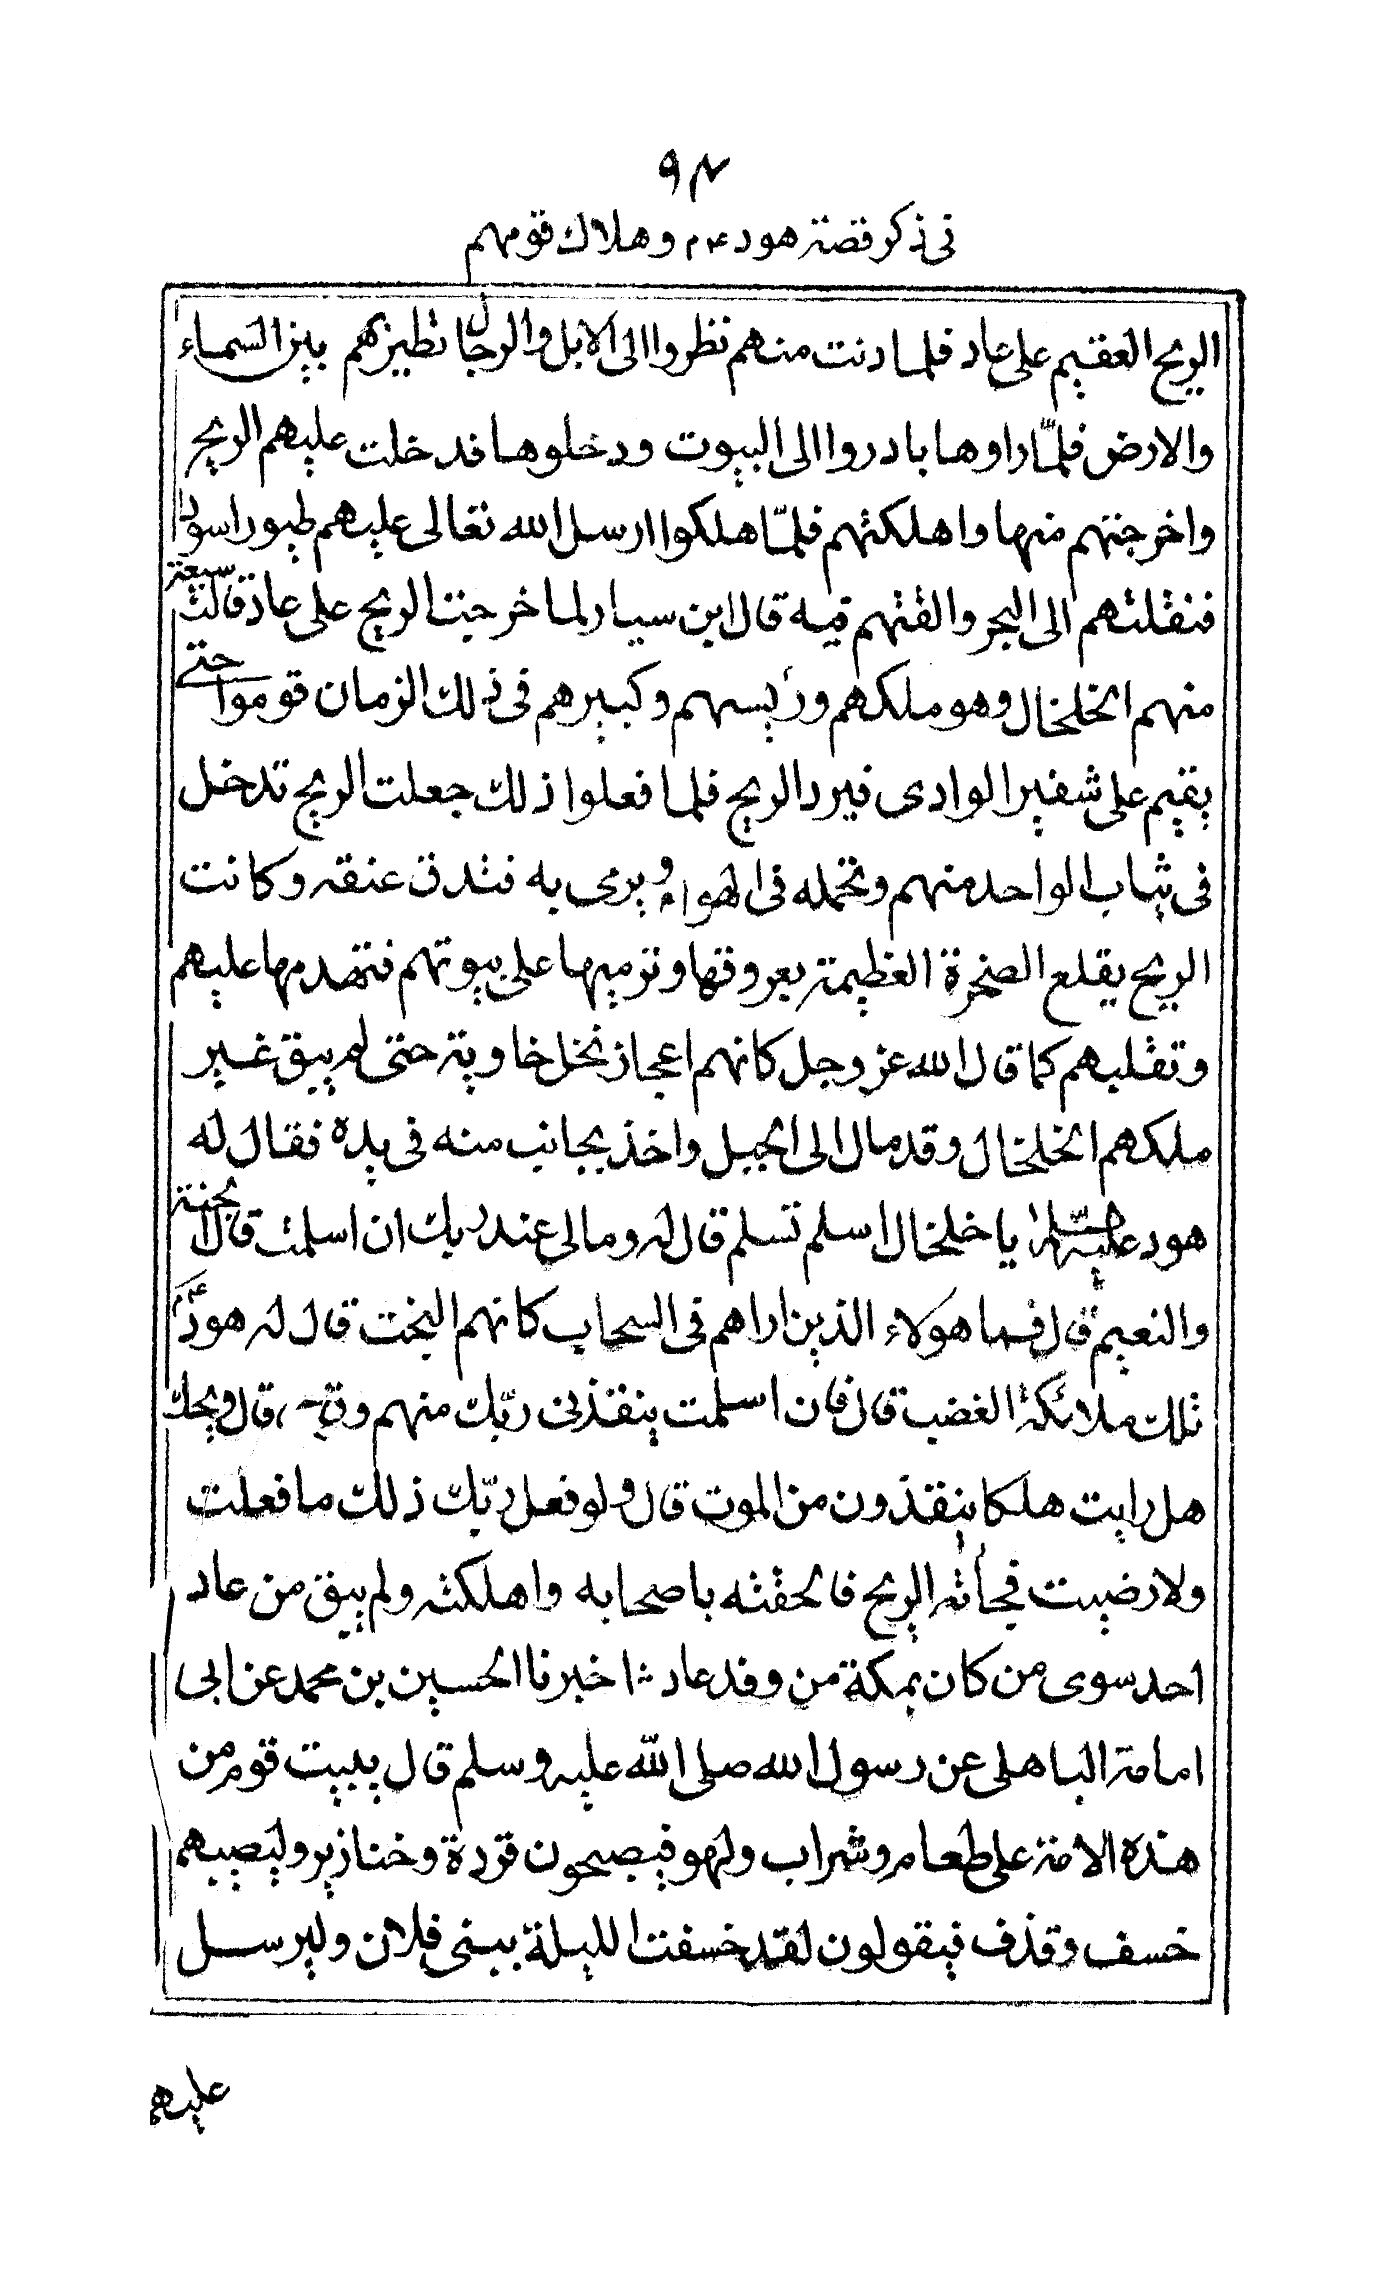 ٩٤
فى ذكر قصة هود ءم وهلاك قومهم
الريح العقيم على عاد فلما دنت منهم نظروا الى الابل والرجال تطيربهم بين السماء
والارض فلمّا راوها بادروا الى البيوت ودخلوها فدخلت عليهم الريح
واخرجتهم منها واهلكتهم فلمّا هلكوا ارسل الله تعالى عليهم طيورا سودا
فنقلتهم الى البحر والقتهم فيه قال ابن سيار لما خرجت الريح على عاد قالت سبعة
منهم الخلخال وهو ملكهم ورئيسهم وكبيرهم فى ذلك الزمان قوموا حتى
يقيم على شفير الوادى فيرد الريح فلما فعلوا ذلك جعلت الريح تدخل
فى ثياب الواحد منهم وتحمله فى الهواء ويرمى به فتندق عنقه وكانت
الريح يقلع الصخرة العظيمة بعروقها وترميها على بيوتهم فتهدمها عليهم
وتقلبهم كما قال الله عز وجل كانهم اعجاز نخل خاوية حتى لم يبق غير
ملكهم الخلخال وقد مال الى الجبل واخذ بجانب منه فى يده فقال له
هود عليه السلام يا خلخال اسلم تسلم قال له ومالى عند ربك ان اسلمت قال الجنة
والنعيم قال فما هولاء الذين اراهم فى السحاب كانهم البخت قال له هود ءم
تلك ملائكة الغضب قال فان اسلمت ينقذنى ربّك منهم وقيه، قال ويحك
هل رايت هلكا ينقذون من الموت قال ولو فعل ربّك ذلك ما فعلت
ولا رضيت فجأته الريح فالحقته باصحابه واهلكته ولم يبق من عاد
احد سوى من كان بمكة من وفد عاد ∴ اخبرنا الحسين بن محمد عن ابى
امامة الباهلى عن رسول الله صلى الله عليه وسلم قال يبيت قوم من
هذه الامة على طعام وشراب ولهو فيصبحون قردة وخنازير وليصيبهم
خسف وقذف فيقولون لقد خسفت الليلة ببنى فلان وليرسل
عليهم